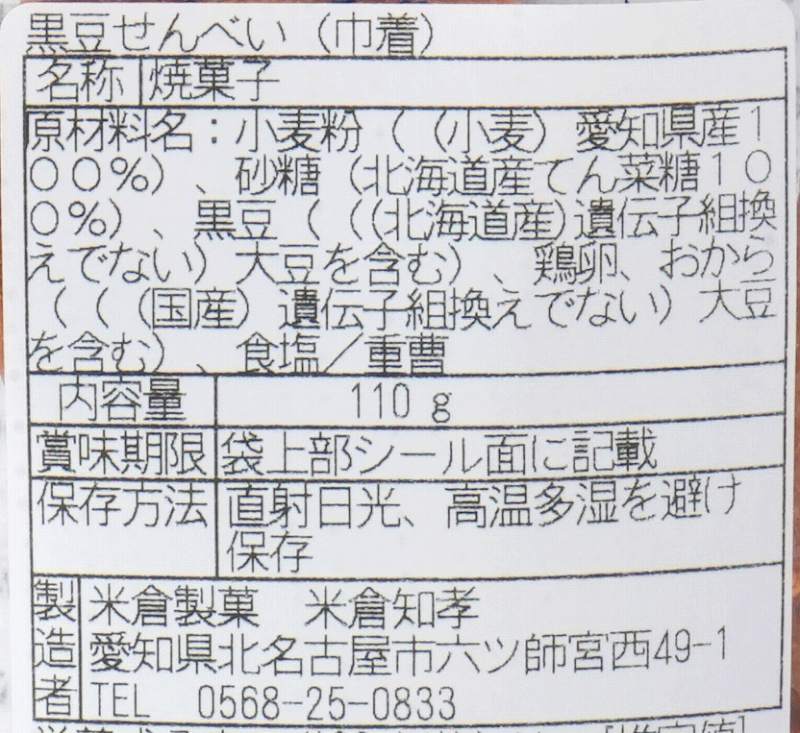 黒豆せんべい（巾着）
名称 焼菓子
原材料名：小麦粉（（小麦）愛知県産１
００％）、砂糖（北海道産てん菜糖１０
０％）、黒豆（（（北海道産）遺伝子組換
えでない）大豆を含む）、鶏卵、おから
（（（国産）遺伝子組換えでない）大豆
を含む）、食塩／重曹
内容量 110 g
賞味期限 袋上部シール面に記載
保存方法 直射日光、高温多湿を避け
保存
製造者 米倉製菓　米倉知孝
愛知県北名古屋市六ツ師宮西49-1
TEL 0568-25-0833